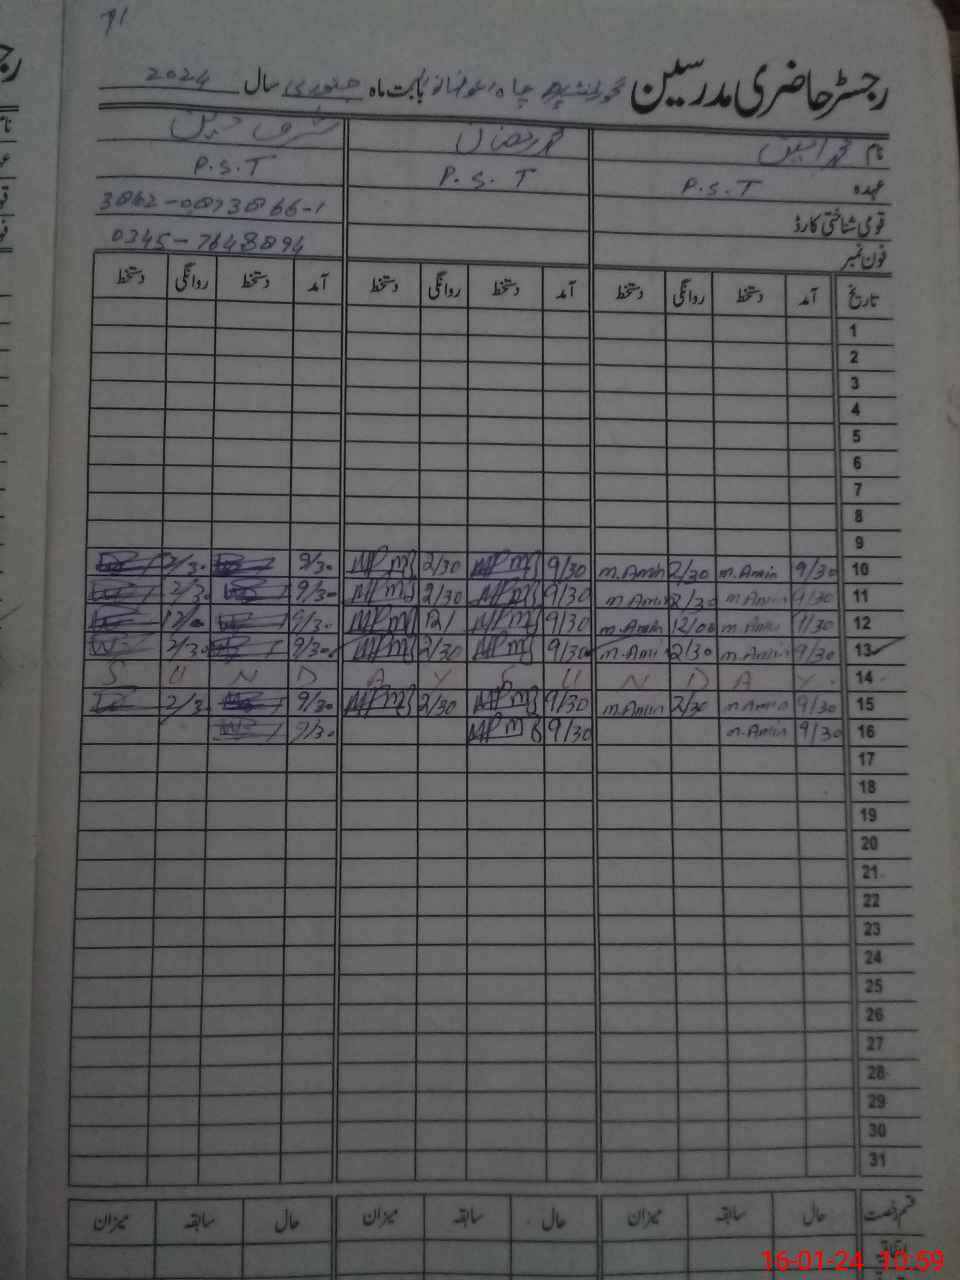 71
رجسٹر حاضری مدرسین بابت ماہ جنوری سال 2024
نام محمد امین محمد رمضان
عہدہ P.S.T P.S.T P.S.T
قومی شناختی کارڈ
فون نمبر 0345-7648894
تاریخ آمد دستخط روانگی دستخط آمد دستخط روانگی دستخط آمد دستخط روانگی دستخط
1
2
3
4
5
6
7
8
9
10 9/30 m.Amin 2/30 m.Amin 9/30 2/30 9/30 2/30
11 9/30 m.Amin 2/30 m.Amin 9/30 2/30 9/30 2/30
12 m.Amin 12/00 m.Amin 9/30 12/ 9/30
13 9/30 m.Amin 2/30 m.Amin 9/30 2/30 9/30 2/30
14 S U N D A Y S U N D A Y
15 9/30 m.Amin 2/30 m.Amin 9/30 2/30 9/30 2/3
16 9/30 m.Amin 9/30 9/30
17
18
19
20
21
22
23
24
25
26
27
28
29
30
31
قسم رخصت حال سابقہ میزان حال سابقہ میزان حال سابقہ میزان
اتفاقیہ
16-01-24 10:59